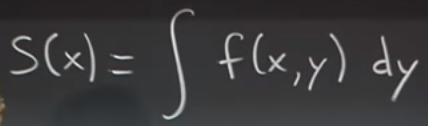 S(x) = ∫ f(x,y) dy